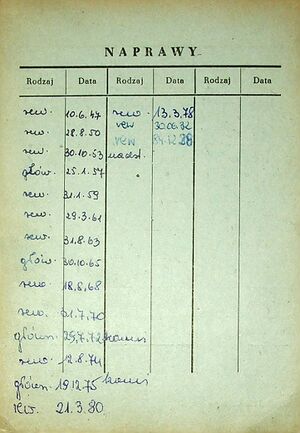 NAPRAWY
Rodzaj Data Rodzaj Data Rodzaj Data
rew. 10.6.47 rew. 13.3.78
rew. 28.8.50 rew 30.06.82
rew. 30.10.53 nadzl. rew
głów. 25.1.57
rew. 31.1.59
rew. 29.3.61
rew. 31.8.63
głów. 30.10.65
rew. 18.8.68
rew. 31.7.70
główn. 29.7.72
rew. 12.8.74
główn. 19.12.75
rew. 21.3.80